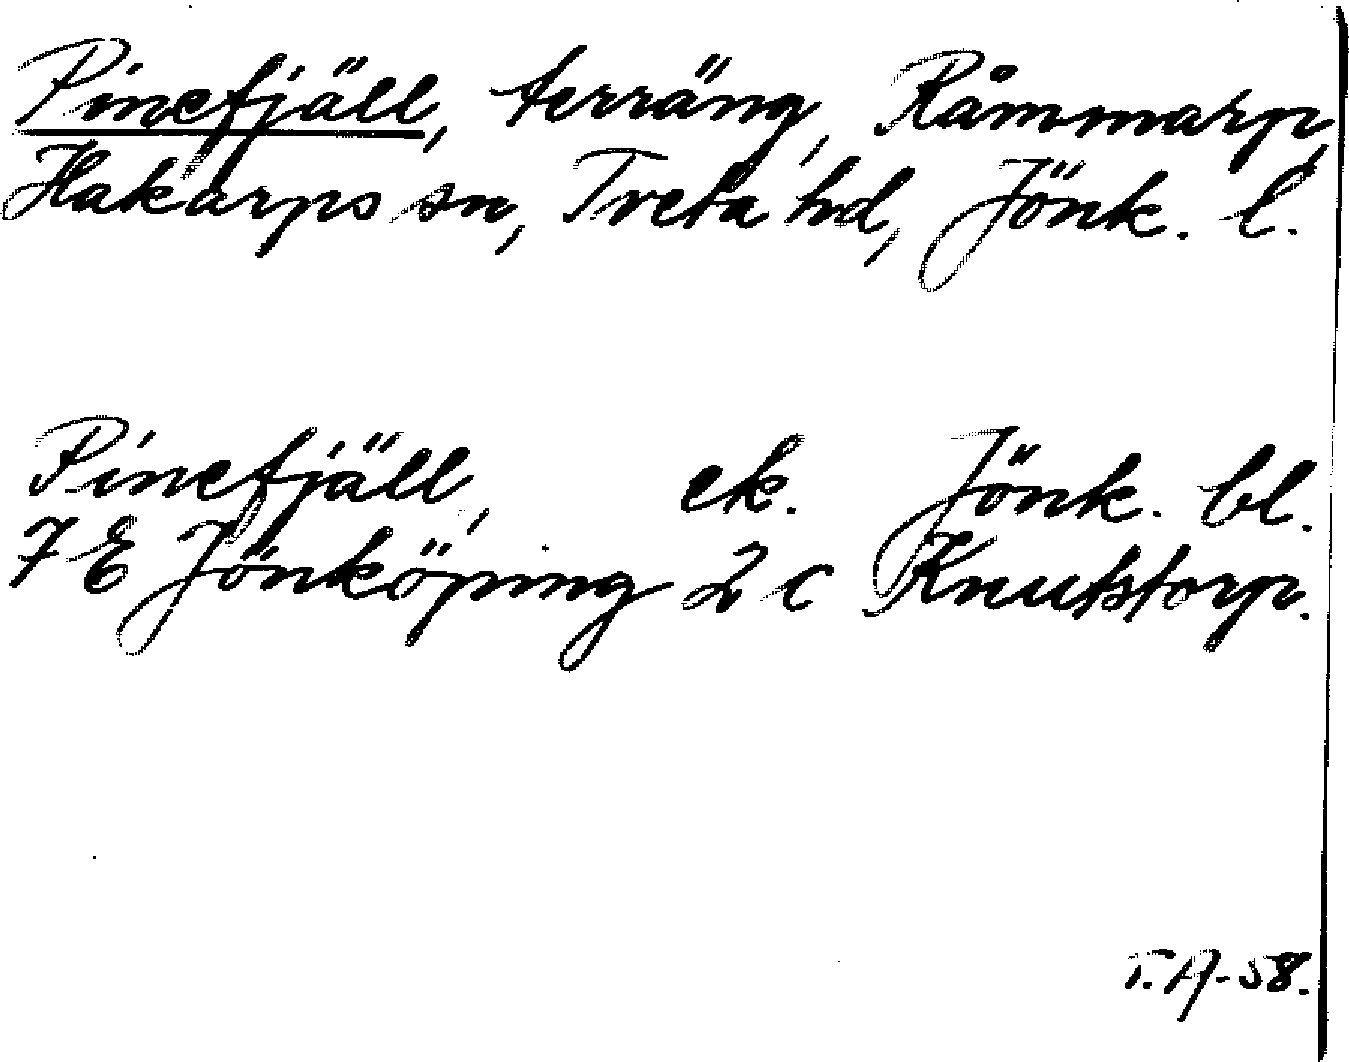 Pinefjäll, terräng, Råmmarp,
Hakarps sn, Tveta hd, Jönk. l.
Pinefjäll, ek. Jönk. bl.
7 E Jönköping 2 c Knutstorp.
T.A-58.